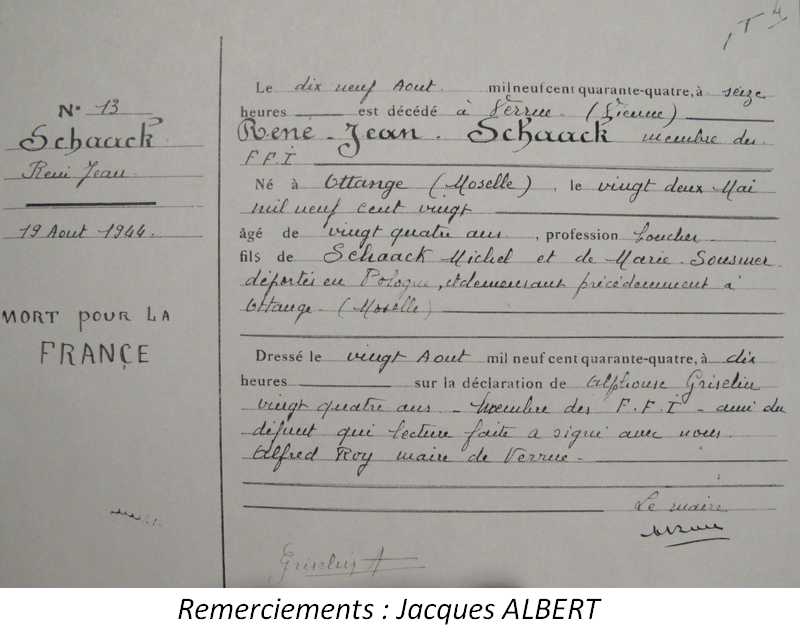 T 4
N° 13
Schaack
René Jean
19 Aout 1944.
MORT POUR LA
FRANÇE
Le dix neuf Aout mil neuf cent quarante-quatre, à seize
heures est décédé à Verrue (Vienne)
René Jean Schaack membre des
F.F.I
Né à Ottange (Moselle), le vingt deux Mai
mil neuf cent vingt
âgé de vingt quatre ans, profession boucher
fils de Schaack Michel et de Marie
déportés en Pologne, et demeurant précédemment à
Ottange (Moselle)
Dressé le vingt Aout mil neuf cent quarante-quatre, à dix
heures sur la déclaration de Alphonse Griselin
vingt quatre ans - membre des F.F.I - ami du
défunt qui lecture faite a signé avec nous
Alfred Roy maire de Verrue -
Le maire
Griselin A
Remerciements : Jacques ALBERT